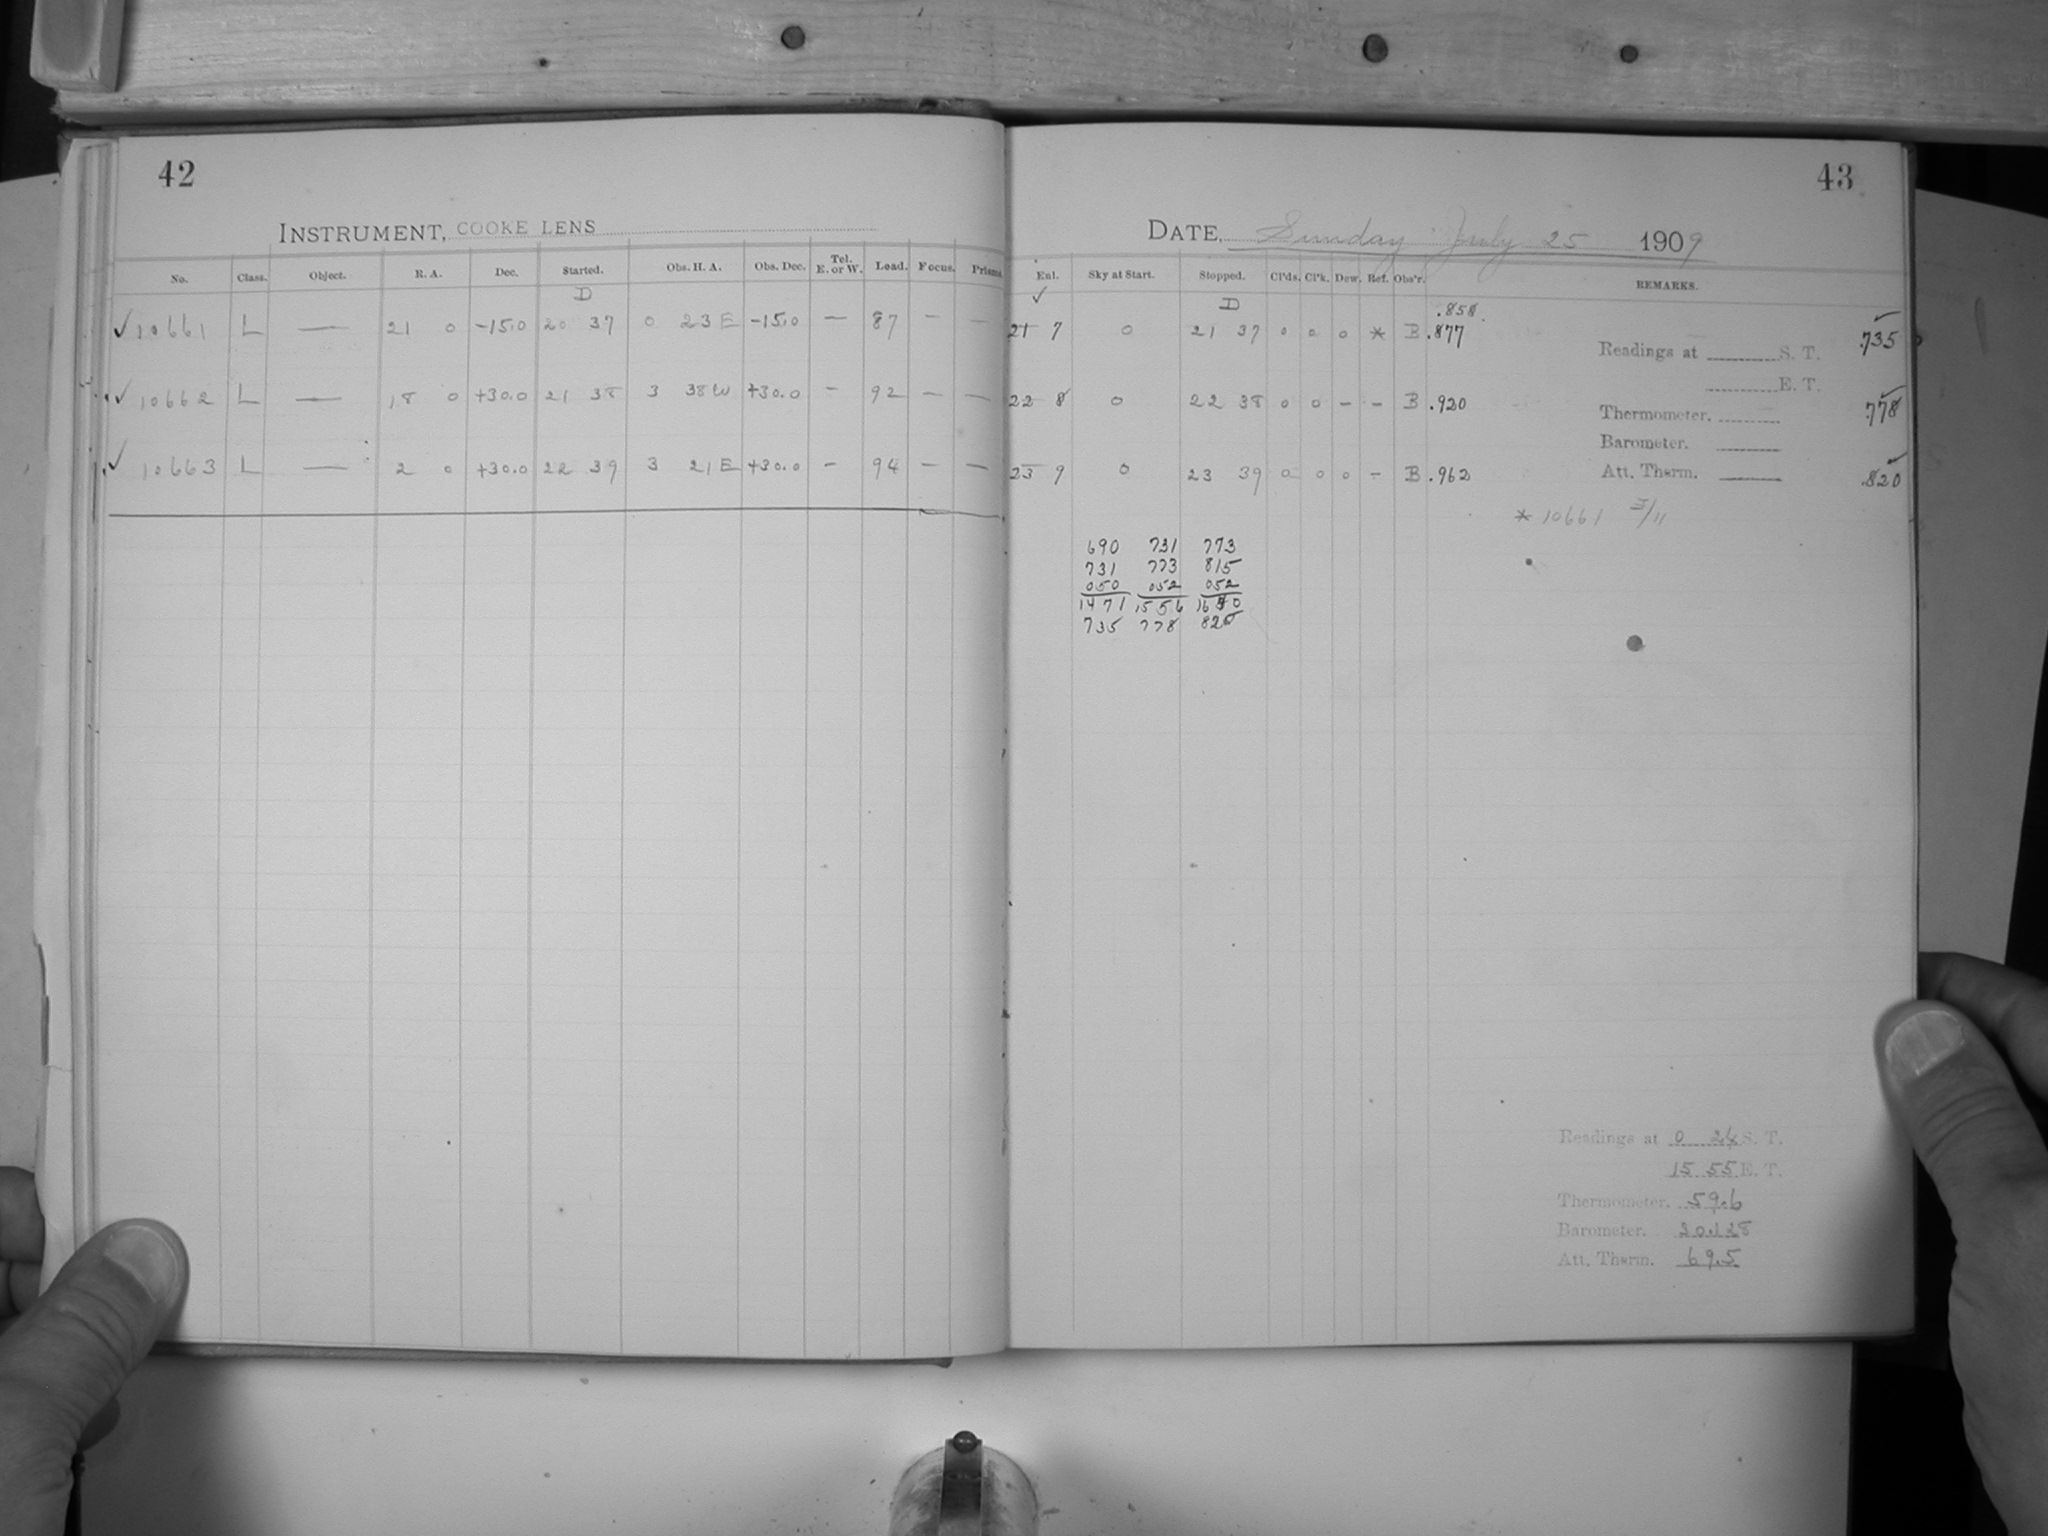 42
INSTRUMENT, COOKE LENS
No. Class. Object. R. A. Dec. Started. Obs. H. A. Obs. Dec. Tel. E. or W. Lead. Focus. Prisms.
D
✓ 10661 L — 21 0 -15.0 20 37 0 23 E -15.0 — 87 — —
✓ 10662 L — 18 0 +30.0 21 38 3 38 W +30.0 — 92 — —
✓ 10663 L — 2 0 +30.0 22 39 3 21 E +30.0 — 94 — —
43
DATE, Sunday July 25 1909
Enl. Sky at Start. Stopped. Cl'ds. Cl'k. Dew. Ref. Obs'r. REMARKS.
✓ D .858
21 7 0 21 37 0 0 0 * B .877 .735 ✓
Readings at S. T.
E. T.
22 8 0 22 38 0 0 – – B .920 .778 ✓
Thermometer.
Barometer.
23 9 0 23 39 0 0 0 – B .962 Att. Therm. .820 ✓
* 10661 I/11
690 731 773
731 773 815
050 052 052
1471 1556 1640
735 778 820
Readings at 0 24 S. T.
15 55 E. T.
Thermometer. 59.6
Barometer. 30.128
Att. Therm. 69.5